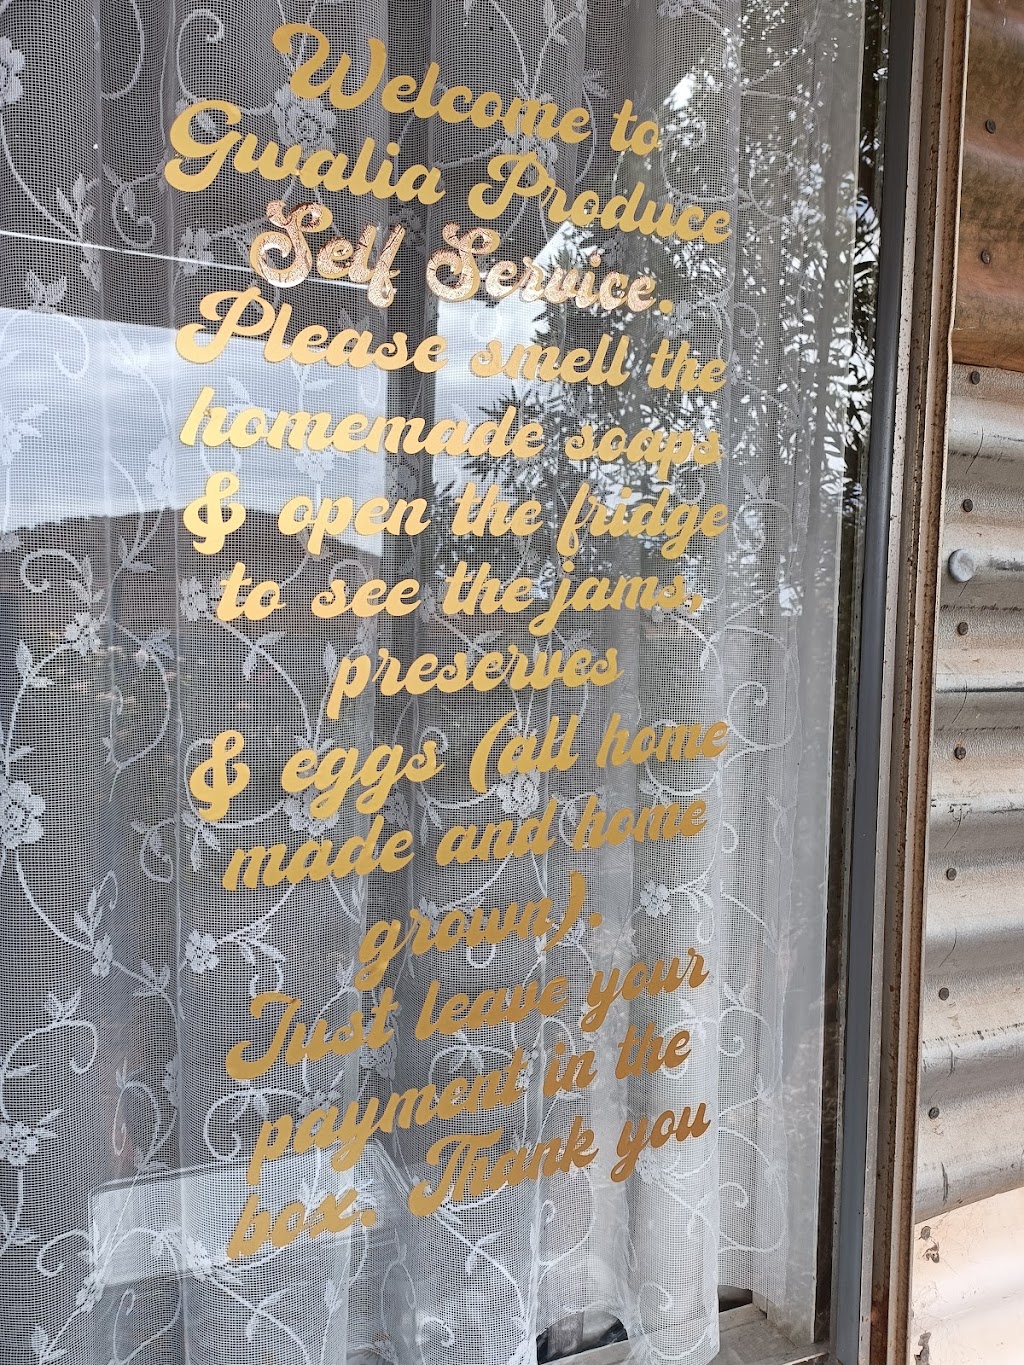 Welcome to
Gwalia Produce
Self Service.
Please smell the
homemade soaps
& open the fridge
to see the jams,
preserves
& eggs (all home
made and home
grown).
Just leave your
payment in the
box. Thank you